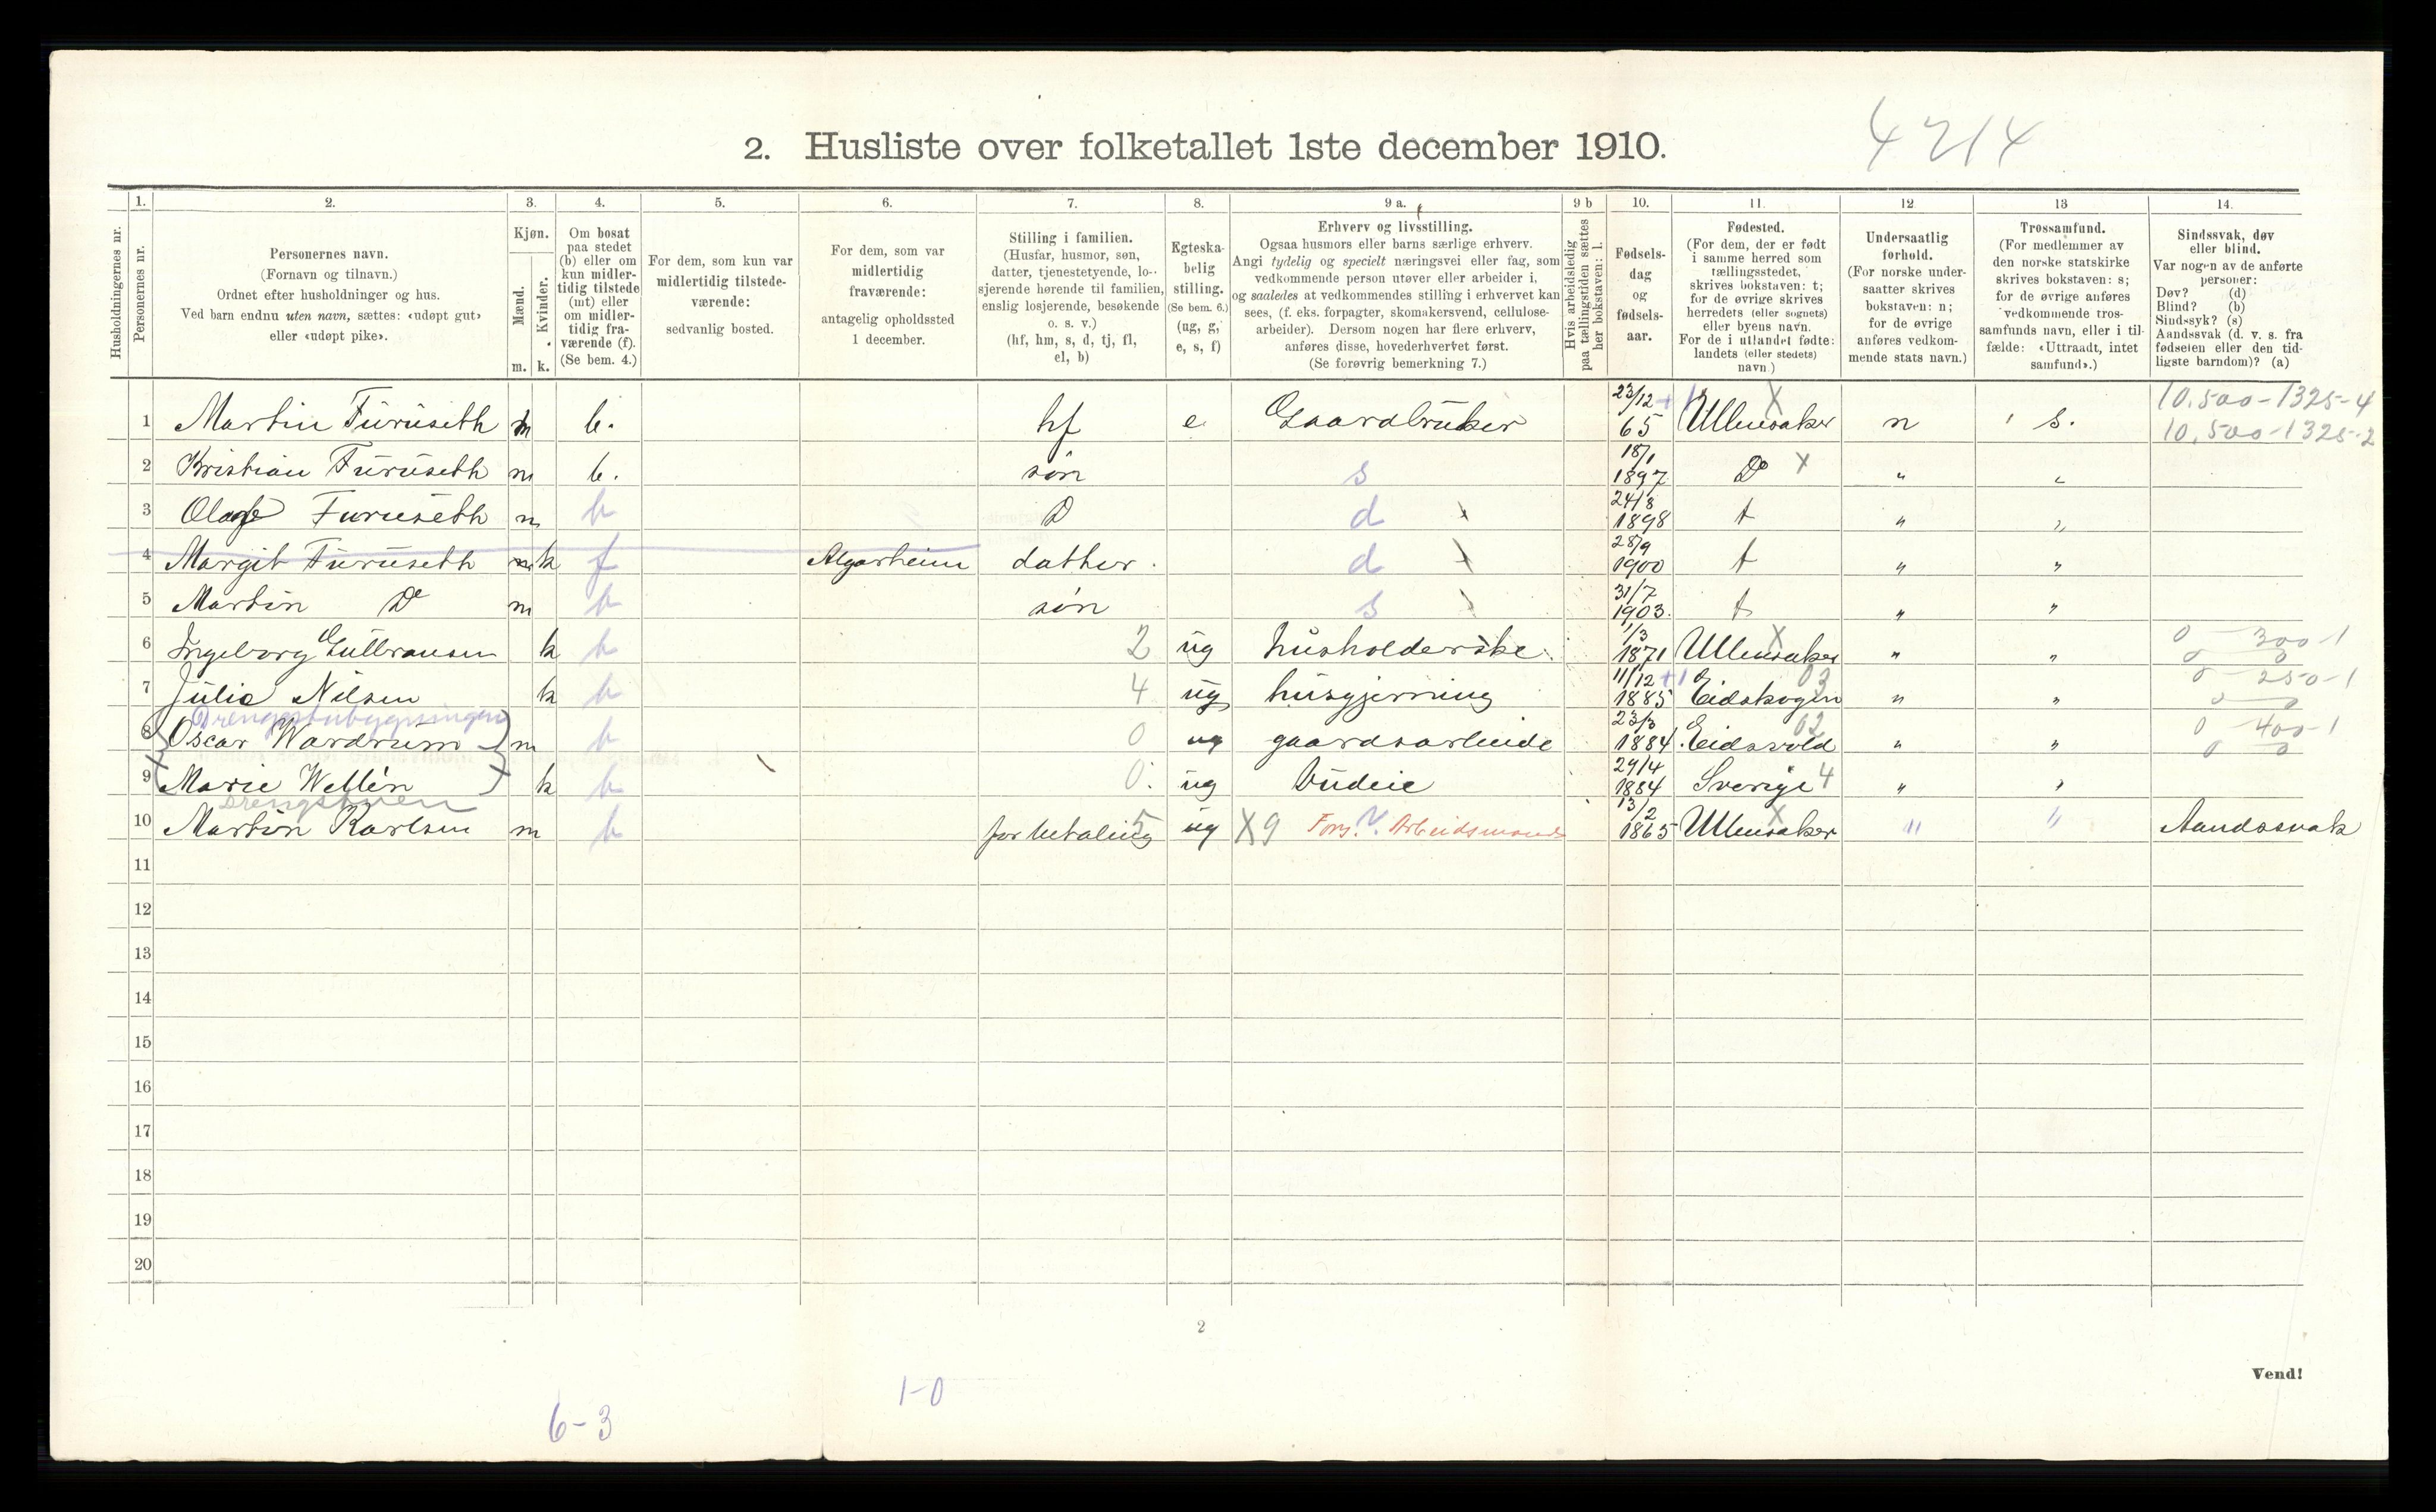 4214
2. Husliste over folketallet 1ste december 1910.
1. 2. 3. 4. 5. 6. 7. 8. 9 a. 9 b 10. 11. 12 13 14.
Husholdningernes nr.
Personernes nr.
Personernes navn.
(Fornavn og tilnavn.)
Ordnet efter husholdninger og hus.
Ved barn endnu uten navn, sættes: «udøpt gut»
eller «udøpt pike».
Kjøn.
Mænd.
Kvinder.
m. k.
Om bosat
paa stedet
(b) eller om
kun midler-
tidig tilstede
(mt) eller
om midler-
tidig fra-
værende (f).
(Se bem. 4.)
For dem, som kun var
midlertidig tilstede-
værende:
sedvanlig bosted.
For dem, som var
midlertidig
fraværende:
antagelig opholdssted
1 december.
Stilling i familien.
(Husfar, husmor, søn,
datter, tjenestetyende, lo-
sjerende hørende til familien,
enslig losjerende, besøkende
o. s. v.)
(hf, hm, s, d, tj, fl,
el, b)
Egteska-
belig
stilling.
(Se bem. 6.)
(ug, g,
e, s, f)
Erhverv og livsstilling.
Ogsaa husmors eller barns særlige erhverv.
Angi tydelig og specielt næringsvei eller fag, som
vedkommende person utøver eller arbeider i,
og saaledes at vedkommendes stilling i erhvervet kan
sees, (f. eks. forpagter, skomakersvend, cellulose-
arbeider). Dersom nogen har flere erhverv,
anføres disse, hovederhvervet først.
(Se forøvrig bemerkning 7.)
Hvis arbeidsledig
paa tællingstiden sættes
her bokstaven: l.
Fødsels-
dag
og
fødsels-
aar.
Fødested.
(For dem, der er født
i samme herred som
tællingsstedet,
skrives bokstaven: t;
for de øvrige skrives
herredets (eller sognets)
eller byens navn.
For de i utlandet fødte:
landets (eller stedets)
navn.)
Undersaatlig
forhold.
(For norske under-
saatter skrives
bokstaven: n;
for de øvrige
anføres vedkom-
mende stats navn.)
Trossamfund.
(For medlemmer av
den norske statskirke
skrives bokstaven: s;
for de øvrige anføres
vedkommende tros-
samfunds navn, eller i til-
fælde: «Uttraadt, intet
samfund».)
Sindssvak, døv
eller blind.
Var nogen av de anførte
personer:
Døv? (d)
Blind? (b)
Sindssyk? (s)
Aandssvak (d. v. s. fra
fødselen eller den tid-
ligste barndom)? (a)
10.500-1325-4
1 Martin Furuseth m b. hf e Gaardbruker 23/12 65 +1 Ullensaker X n s. 10.500-1325-2
2 Kristian Furuseth m b. søn s 18/1 1897 Do X " "
3 Olaf Furuseth m b D d 24/8 1898 t " "
4 Margit Furuseth k f Algarheim datter. d 28/9 1900 t " "
5 Martin Do m b søn s 31/7 1903. t " "
6 Ingeborg Gulbransen k b 2 ug husholderske. 1/3 1871 Ullensaker X " " 0 300-1 0 0
7 Julie Nilsen k b 4 ug husgjerning 11/12 +1 1885 Eidskogen 03 " " 0 250-1 0 0
Drengstubygningen
8 Oscar Wardrum m b 0 ug gaardsarbeide 23/3 1884. Eidsvold 02 " " 0 400-1 0 0
9 Marie Wellén k b 0. ug budeie 29/4 1884 Sverige 4 " "
Drengstuen
10 Martin Karlsen m b for betaling 5 ug X9 Fors. V. Arbeidsmand 13/2 1865 Ullensaker X " " Aandssvak
11
12
13
14
15
16
17
18
19
20
2
Vend!
1-0
6-3